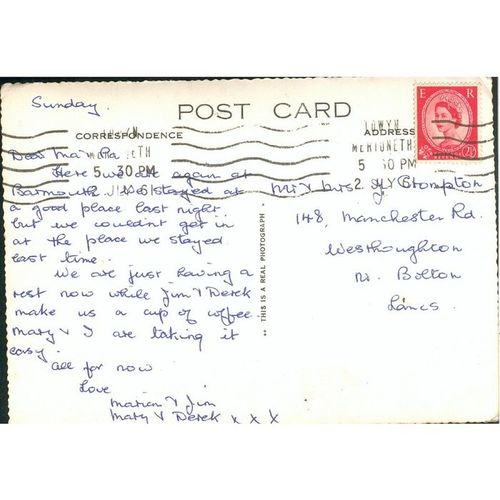 Sunday.
POST CARD
CORRESPONDENCE
ADDRESS
E R
2½
TOWYN
MERIONETH
5 30 PM
2 JY 6
Dear Ma & Pa
Here we are again at
Barmouth. We stayed at
a good place last night.
but we couldn't get in
at the place we stayed
last time.
We are just having a
rest now while Jim & Derek
make us a cup of coffee.
Mary & I are taking it
easy.
All for now
Love
Marion & Jim
Mary & Derek x x x
** THIS IS A REAL PHOTOGRAPH
Mr & Mrs Brompton
148, Manchester Rd.
Westhoughton
Nr. Bolton
Lancs.